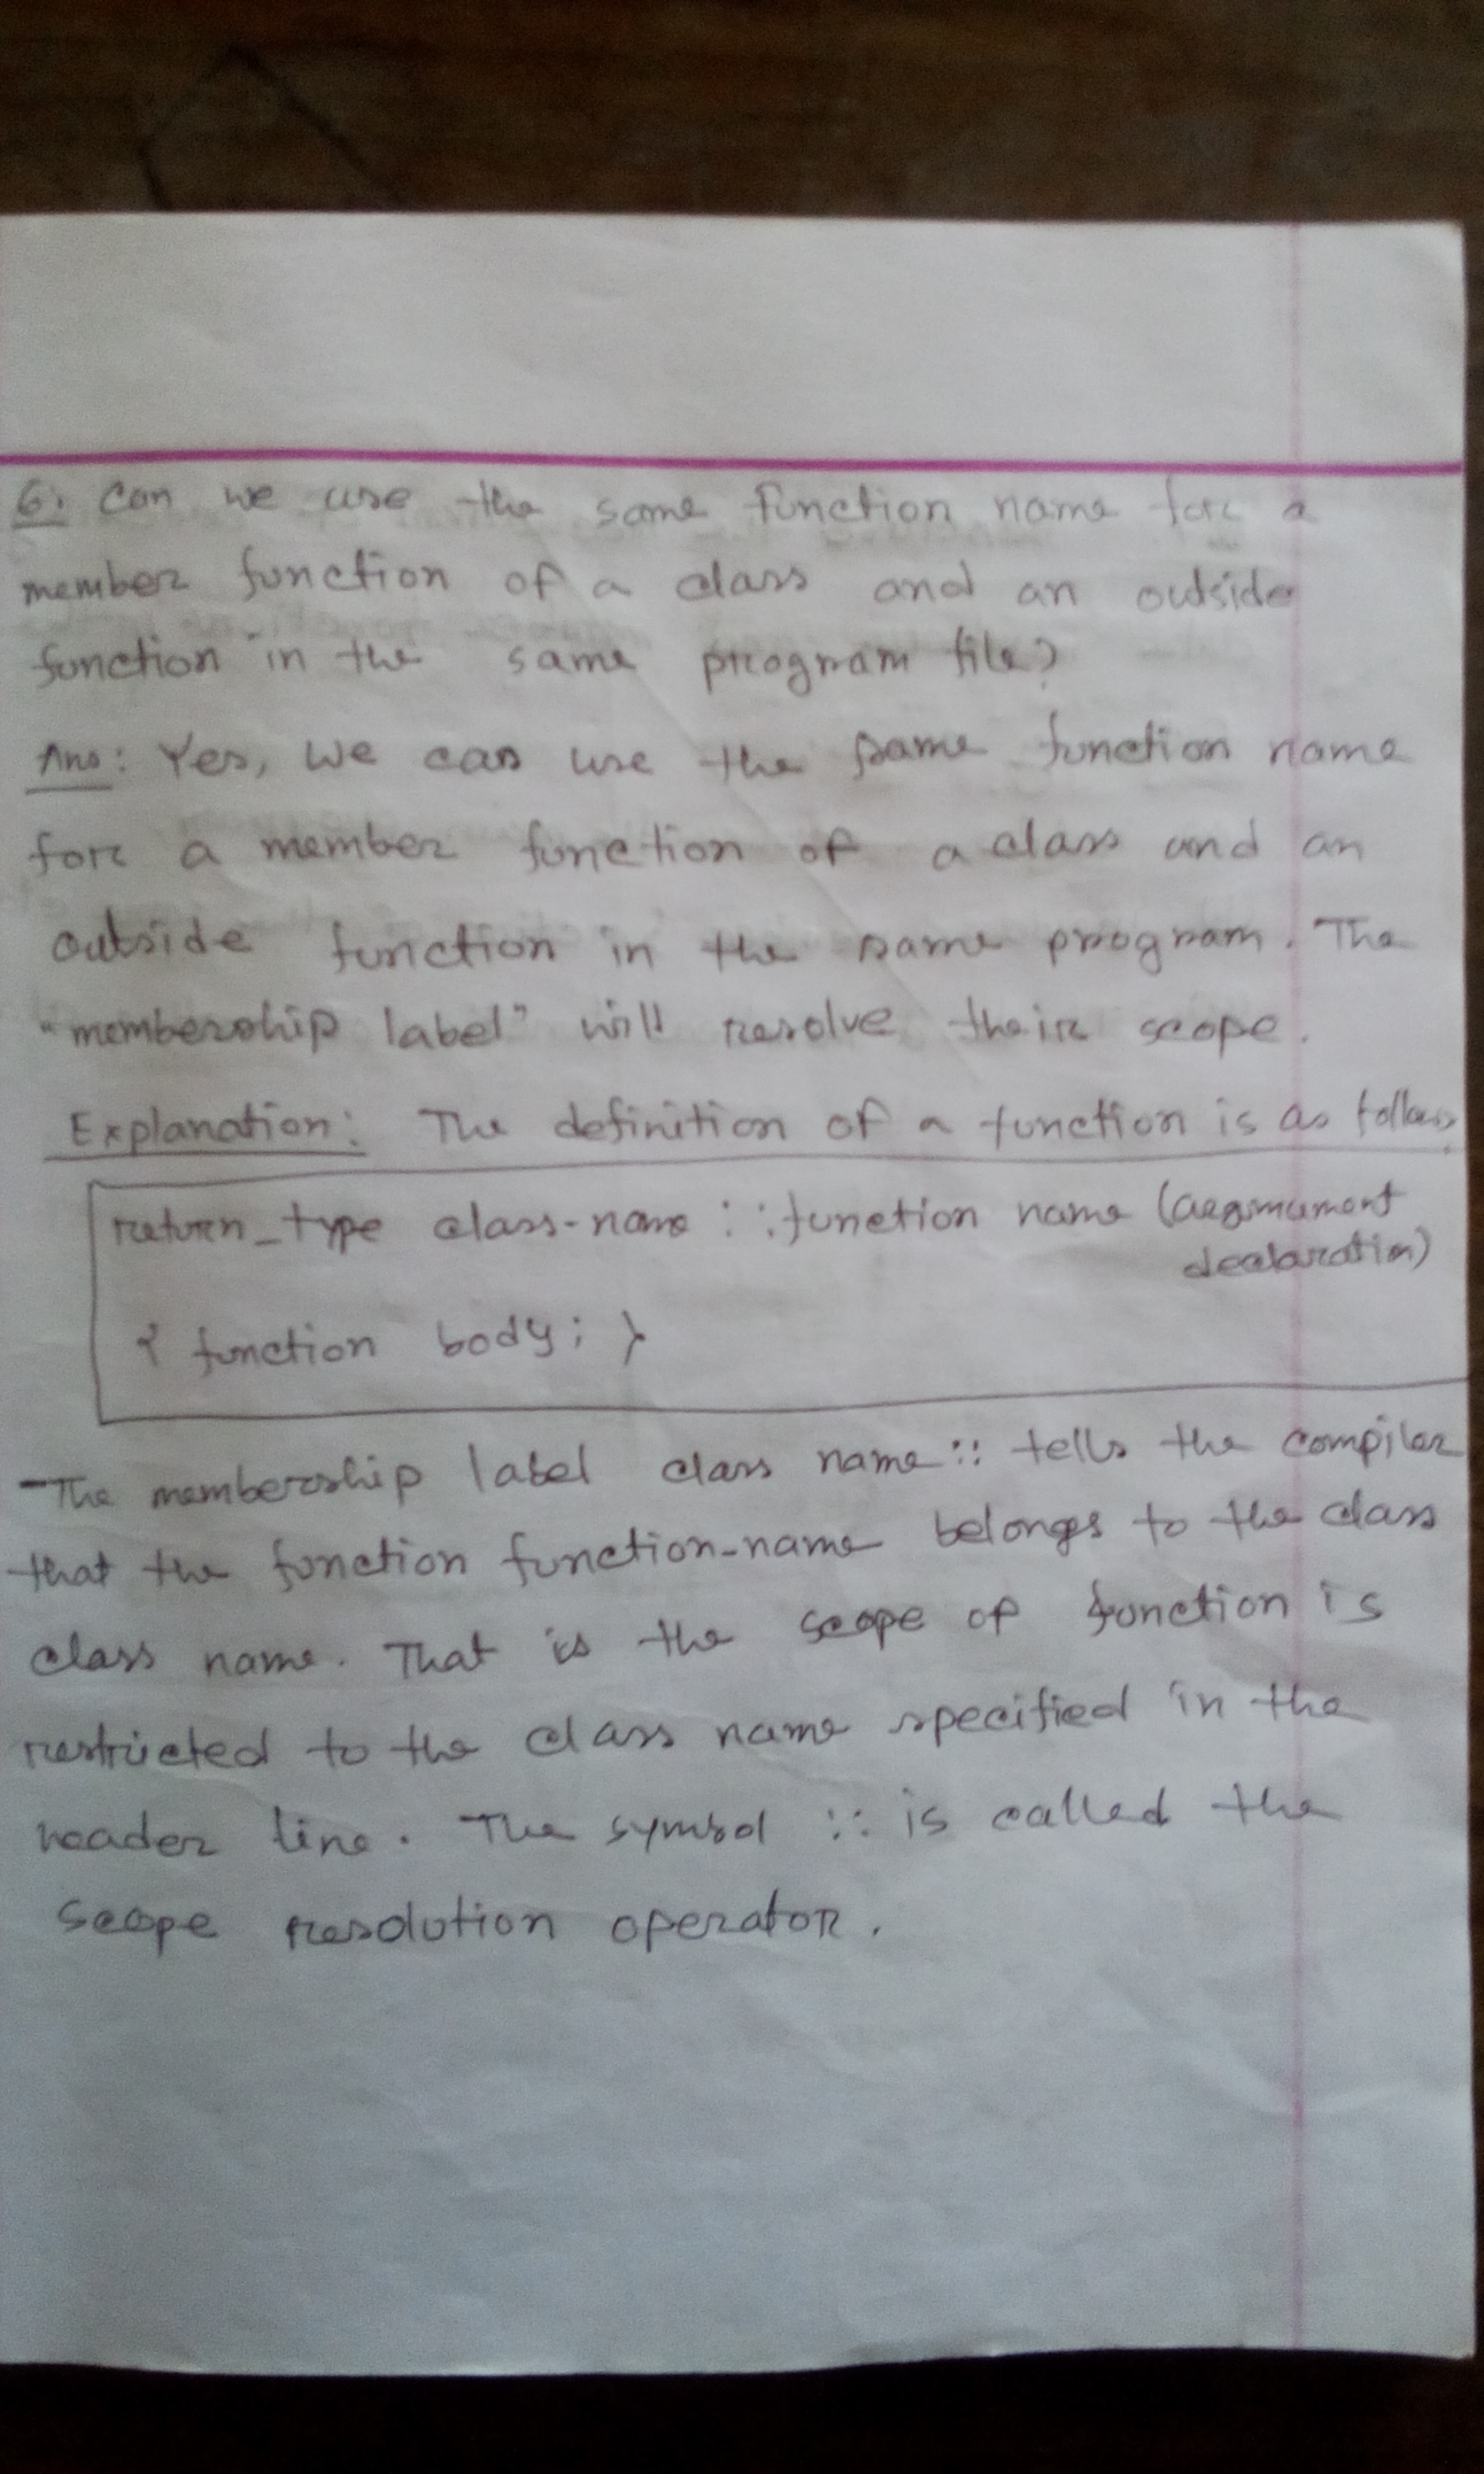 6. Can we use the same function name for a
member function of a class and an outside
function in the same program file?
Ans: Yes, we can use the same function name
for a member function of a class and an
outside function in the same program. The
"membership label" will resolve their scope.
Explanation: The definition of a function is as follows
return_type class-name :: function name (argumument
declaration)
{ function body; }
The membership label class name:: tells the compiler
that the function function-name belongs to the class
class name. That is the scope of function is
restricted to the class name specified in the
header line. The symbol :: is called the
scope resolution operator.